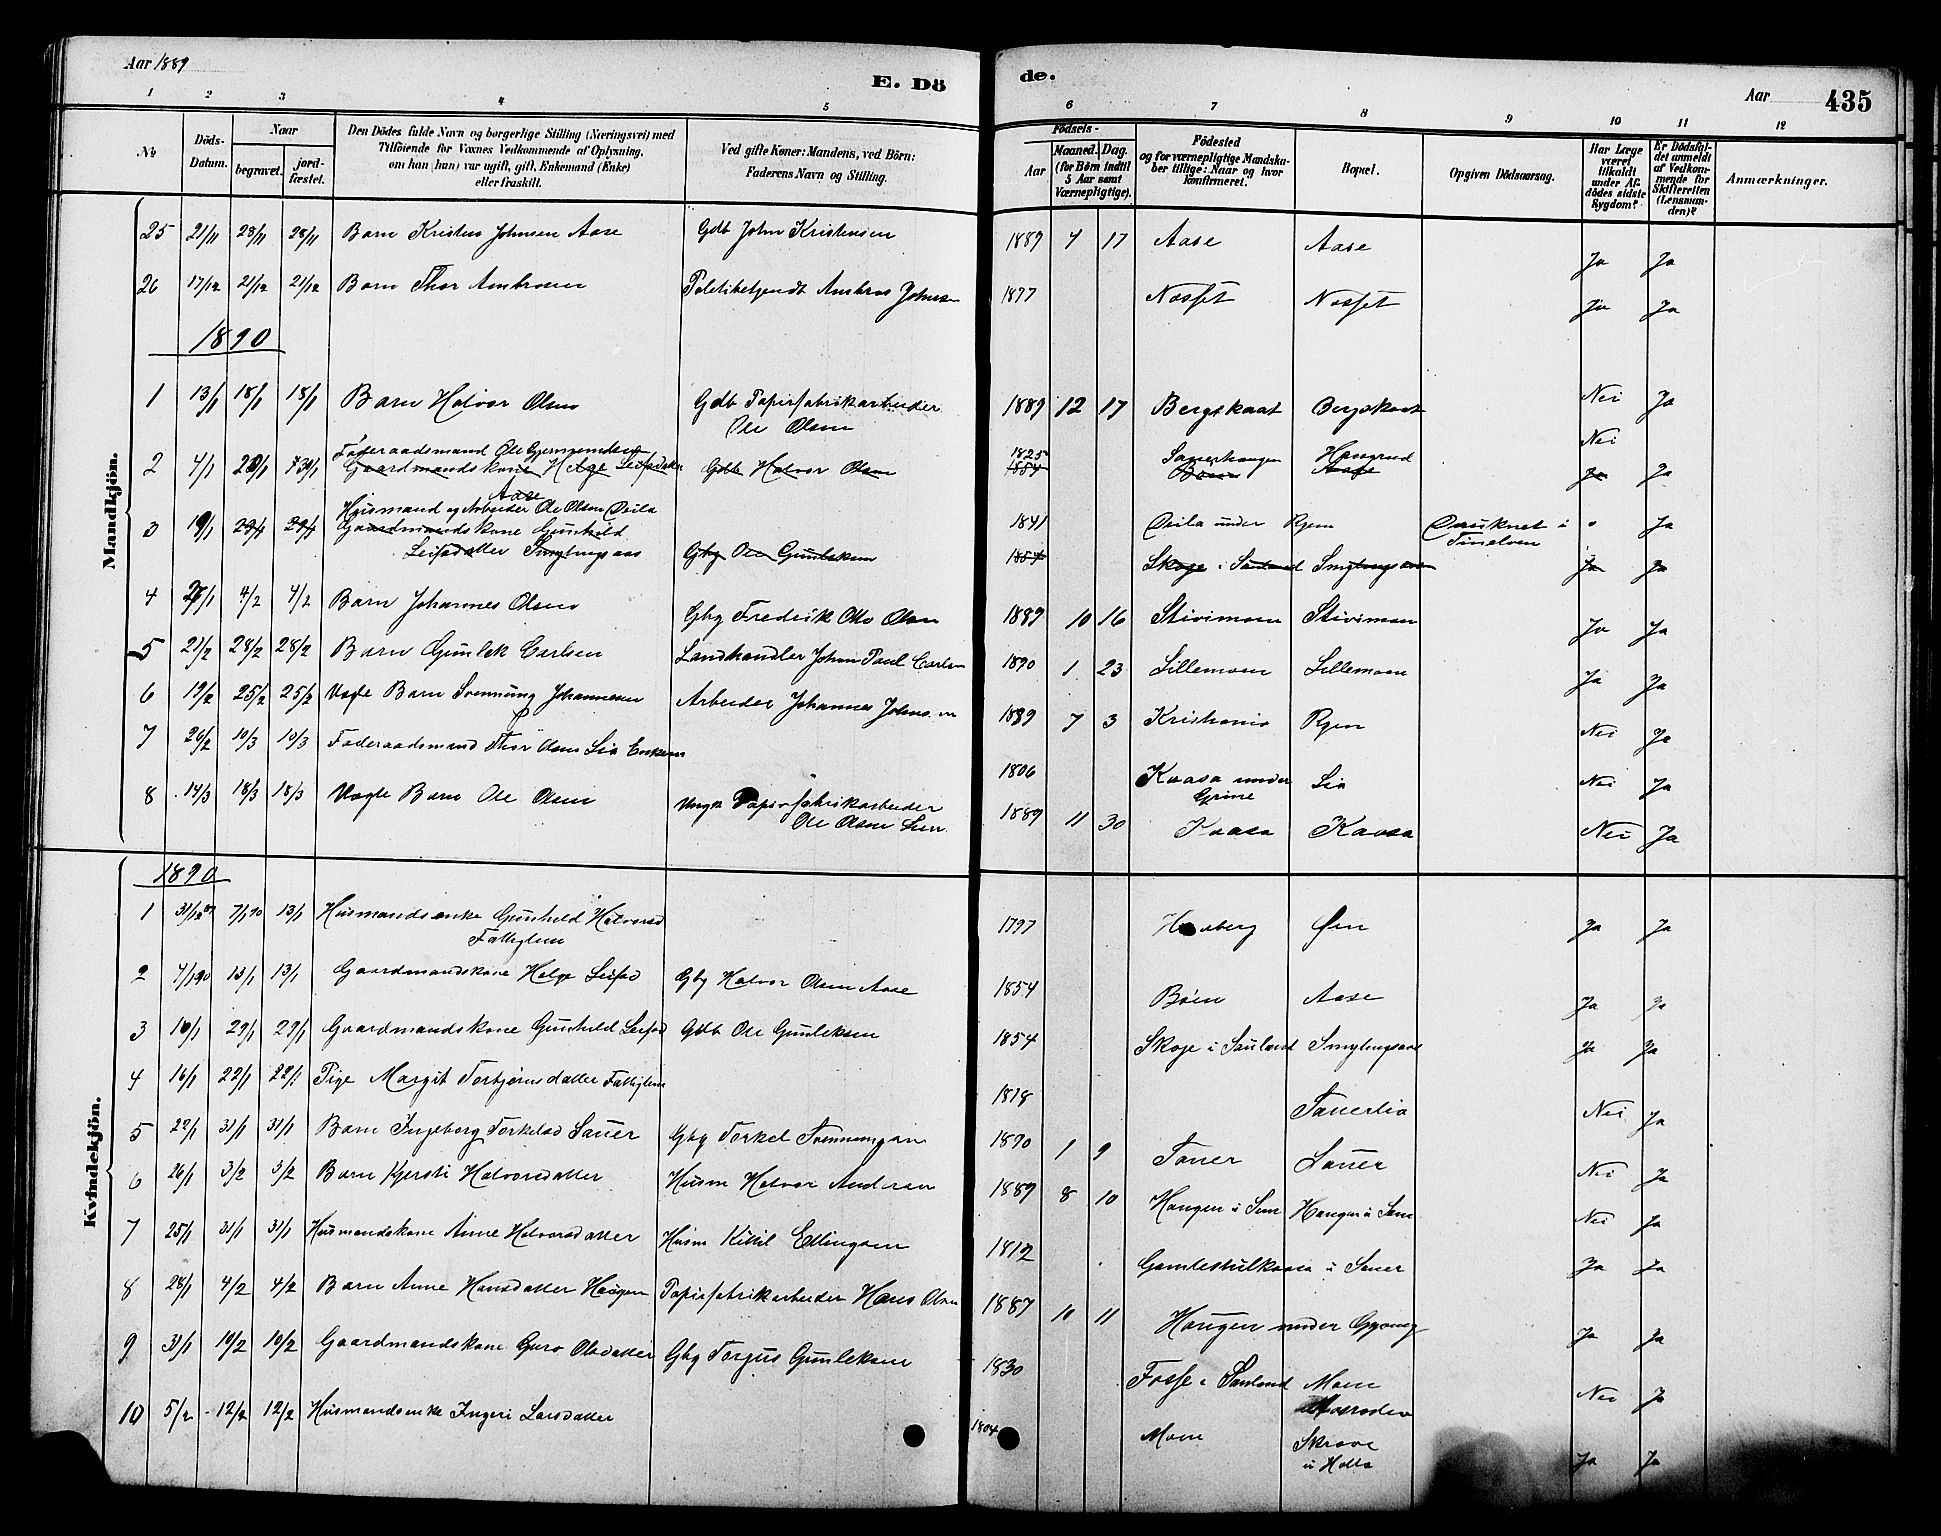 Aar 1889
E. Dö
de.
Aar
435
1 2 3 4 5 6 7 8 9 10 11 12
No
Döds-Datum.
Naar
begravet.
jord-fæstet.
Den Dödes fulde Navn og borgerlige Stilling (Næringsvei) med
Tilföiende for Voxnes Vedkommende af Oplysning,
om han (hun) var ugift, gift, Enkemand (Enke)
eller fraskilt.
Ved gifte Koner: Mandens, ved Börn:
Faderens Navn og Stilling.
Födsels-
Aar
Maaned. Dag.
(for Börn indtil
5 Aar samt
Værnepligtige).
Födested
og for værnepligtige Mandska-
ber tillige: Naar og hvor
konfirmeret.
Bopæl.
Opgiven Dödsaarsag.
Har Læge
været
tilkaldt
under Af-
dödes sidste
Sygdom?
Er Dödsfal-
det anmeldt
af Vedkom-
mende for
Skifteretten
(Lensman-
den)?
Anmærkninger.
Mandkjön.
25 21/11 28/11 28/11 Barn Kristen Johnsen Aase Gdb John Kristensen 1889 4 17 Aase Aase Ja Ja
26 17/12 21/12 21/12 Barn Thor Ambrosen Ambros Johnsen Næsset Næsset Ja Ja
1890
1 13/1 18/1 18/1 Barn Halvor Olsen Gdb Papirfabrikarbeider 1889 12 17 Bergskaat Bergskaat Nei Ja
Ole Olsen
Føderaadsmand Ole 1825 Haugrud Nei
2 4/1 Gaardmandskone Helge Leifsdatter Gdb Halvor Olsen 1854 Bøen Aase Ja Ja
Aase
Husmand og Arbeider Ole Olsen Øeila 1841 Øeila under Rjen Druknet i Ja
3 19/1 Gaardmandskone Gunhild Tinelven
Leifsdatter Smylingsaas Gbg Ole Gunleksen 1854 Skoje i Sauland Smylingsaas Ja Ja
4 4/2 4/2 Barn Johannes Olsen Gbg Fredrik Otto Olsen 1889 10 16 Stivimoen Stivimoen Ja Ja
5 21/2 28/2 28/2 Barn Gunlek Carlsen Landhandler Johan Paul Carlsen 1890 1 23 Lillemoen Lillemoen Ja Ja
6 19/2 25/2 25/2 Barn Svennung Johannesen Arbeider Johannes Johnsen 1889 7 3 Kristiania Rjen Nei Ja
7 26/2 10/3 10/3 Føderaadsmand Thor Olsen Lia Enkem 1806 Kaasa under Lia Nei Ja
Grine
8 14/3 18/3 18/3 Uægte Barn Ole Olsen Ungk Papirfabrikarbeider 1889 11 30 Kaasa Kaasa Nei Ja
Ole Olsen
Kvindekjön.
1890
1 31/12 89 7/1 90 13/1 Husmandsenke Gunhild Halvorsd 1797 Øen Ja Ja
Fattiglem
2 4/1 90 13/1 13/1 Gaardmandskone Helge Leifsd Gbg Halvor Olsen Aase 1854 Bøen Aase Ja Ja
3 29/1 29/1 Gaardmandskone Gunhild Leifsd Gdb Ole Gunleksen 1854 Skoje i Sauland Smylingsaas Ja Ja
4 16/1 22/1 22/1 Pige Margit Torbjørnsdatter Fattiglem 1818 Sauerlia Nei Ja
5 22/1 31/1 31/1 Barn Ingeborg Torkelsd Sauer Gbg Torkel 1890 1 9 Sauer Sauer Nei Ja
6 26/1 3/2 3/2 Barn Kjersti Halvorsdatter Husm Halvor Andersen 1889 8 10 Haugen i Sem Haugen i Sem Nei Ja
7 25/1 31/1 31/1 Husmandskone Anne Halvorsdatter Husm Kittil Ellingsen 1812 i Sauer Ja Ja
8 28/1 4/2 4/2 Barn Anne Hansdatter Haugen Papirfabrikarbeider Hans Olsen 1887 10 11 Haugen under Ja Ja
9 31/1 10/2 10/2 Gaardmandskone Guro Olsdatter Gbg Torgus Gunleksen 1830 Fosse i Sauland Moen Nei Ja
10 5/2 12/2 12/2 Husmandsenke Ingeri Larsdatter 1804 Moen Ja Ja
i Holla